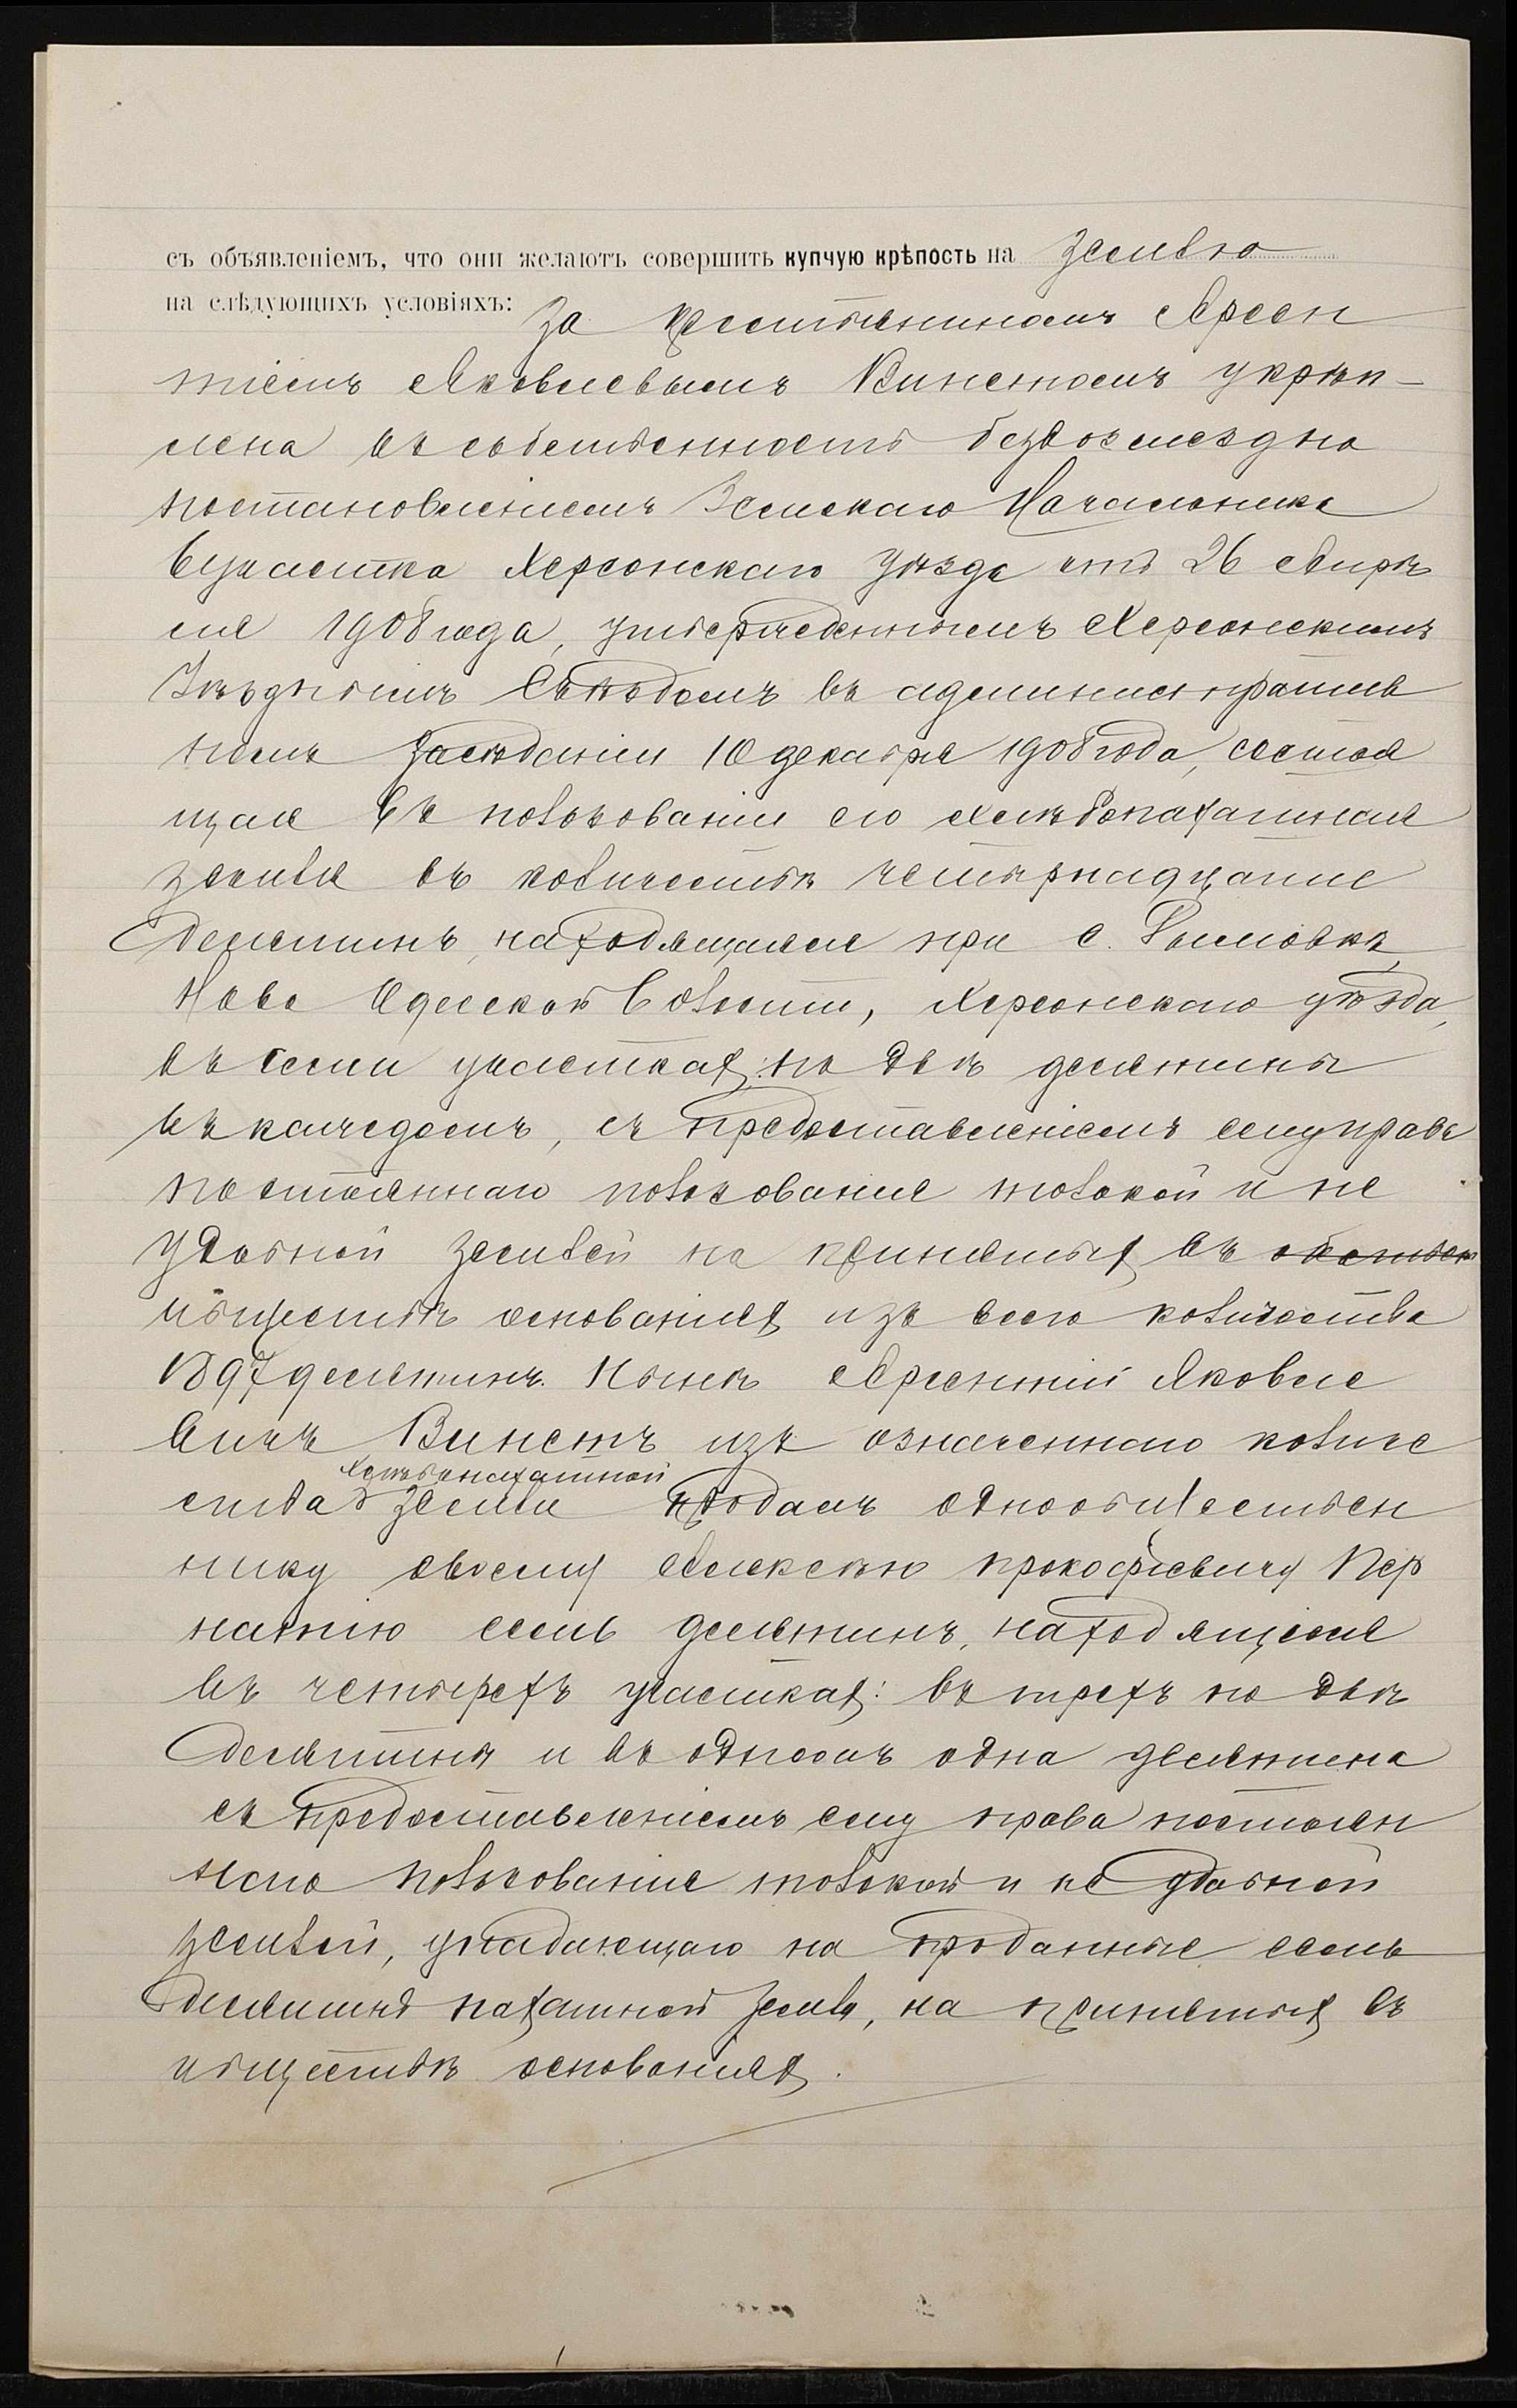 съ объявленіемъ, что они желаютъ совершить купчую крѣпость на землю
на слѣдующихъ условіяхъ: За крестьяниномъ Арсен
тіемъ Яковлевымъ Винентомъ укрѣп-
лена въ собственность безвозмездно
постановленіемъ Земскаго Начальника
6 участка Херсонскаго уѣзда отъ 26 Апрѣ
ля 1908 года, утвержденнымъ Херсонскимъ
Уѣзднымъ Съѣздомъ въ административ
номъ засѣданіи 10 декабря 1908 года, состоя
щая въ пользованіи его хлѣбопахатная
земля въ количествѣ четырнадцати
десятинъ, находящаяся при с.
Ново Одесской волости, Херсонскаго уѣзда,
въ семи участкахъ: по двѣ десятины
въ каждомъ, съ предоставленіемъ ему права
постояннаго пользованія толокой и не
удобной землей на принятыхъ въ
обществѣ основаніяхъ изъ всего количества
1897 десятинъ. Нынѣ Арсентій Яковле
вичъ Винентъ изъ означеннаго количе
хлѣбопахатной
ства земли продалъ однообществен
нику своему Алексѣю Прокофіевичу Пер
натію семь десятинъ, находящіяся
въ четырехъ участкахъ: въ трехъ по двѣ
десятины и въ одномъ одна десятина
съ предоставленіемъ ему права постоян
наго пользованія толокой и не удобной
землей, упадающаго на проданныя семь
десятинъ пахатной земли, на принятыхъ въ
обществѣ основаніяхъ.